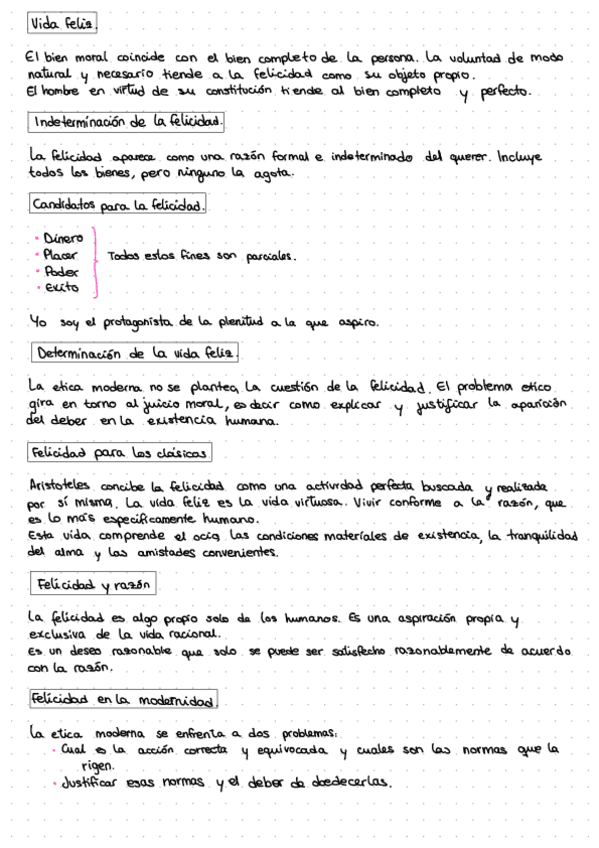 Vida feliz.
El bien moral coincide con el bien completo de la persona. La voluntad de modo
natural y necesario tiende a la felicidad como su objeto propio.
El hombre en virtud de su constitución tiende al bien completo y perfecto.
Indeterminación de la felicidad.
La felicidad aparece como una razón formal e indeterminado del querer. Incluye
todos los bienes, pero ninguno la agota.
Candidatos para la felicidad.
· Dinero
· Placer
· Poder
· Exito
Todos estos fines son parciales.
Yo soy el protagonista de la plenitud a la que aspiro.
Determinación de la vida feliz.
La etica moderna no se plantea, la cuestión de la felicidad. El problema etico
gira en torno al juicio moral, es decir como explicar y justificar la aparición
del deber en la existencia humana.
Felicidad para los clásicos
Aristoteles concibe la felicidad como una actividad perfecta buscada y realizada
por sí misma. La vida feliz es la vida virtuosa. Vivir conforme a la razón, que
es lo más especificamente humano.
Esta vida comprende el ocio, las condiciones materiales de existencia, la tranquilidad
del alma y las amistades convenientes.
Felicidad y razón
La felicidad es algo propio solo de los humanos. Es una aspiración propia y
exclusiva de la vida racional.
Es un deseo razonable que solo se puede ser satisfecho razonablemente de acuerdo
con la razón.
Felicidad en la modernidad.
La etica moderna se enfrenta a dos problemas:
· Cual es la acción correcta y equivocada y cuales son las normas que la
rigen.
· Justificar esas normas y el deber de obedecerlas.